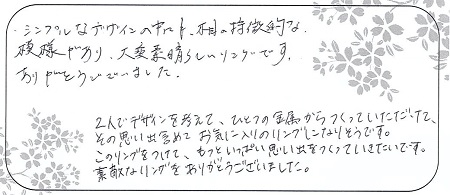 ・シンプルなデザインの中にも、木目の特徴的な
模様があり、大変素晴らしいリングです。
ありがとうございました。
2人でデザインを考えて、ひとつの金属からつくっていただけて、
その思い出含めてお気に入りのリングになりそうです。
このリングをつけて、もっといっぱい思い出をつくっていきたいです。
素敵なリングをありがとうございました。